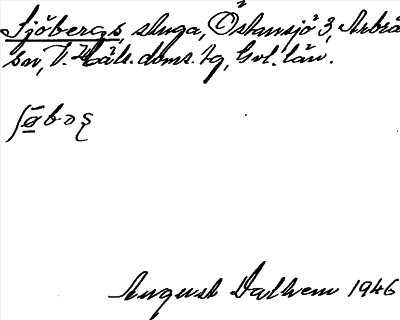 Sjöbergs, stuga, Östansjö 3, Arbrå
sn, V. Häls. doms. tg, Gvl. län.
ʃø̄bəʂ
August Dalhem 1946